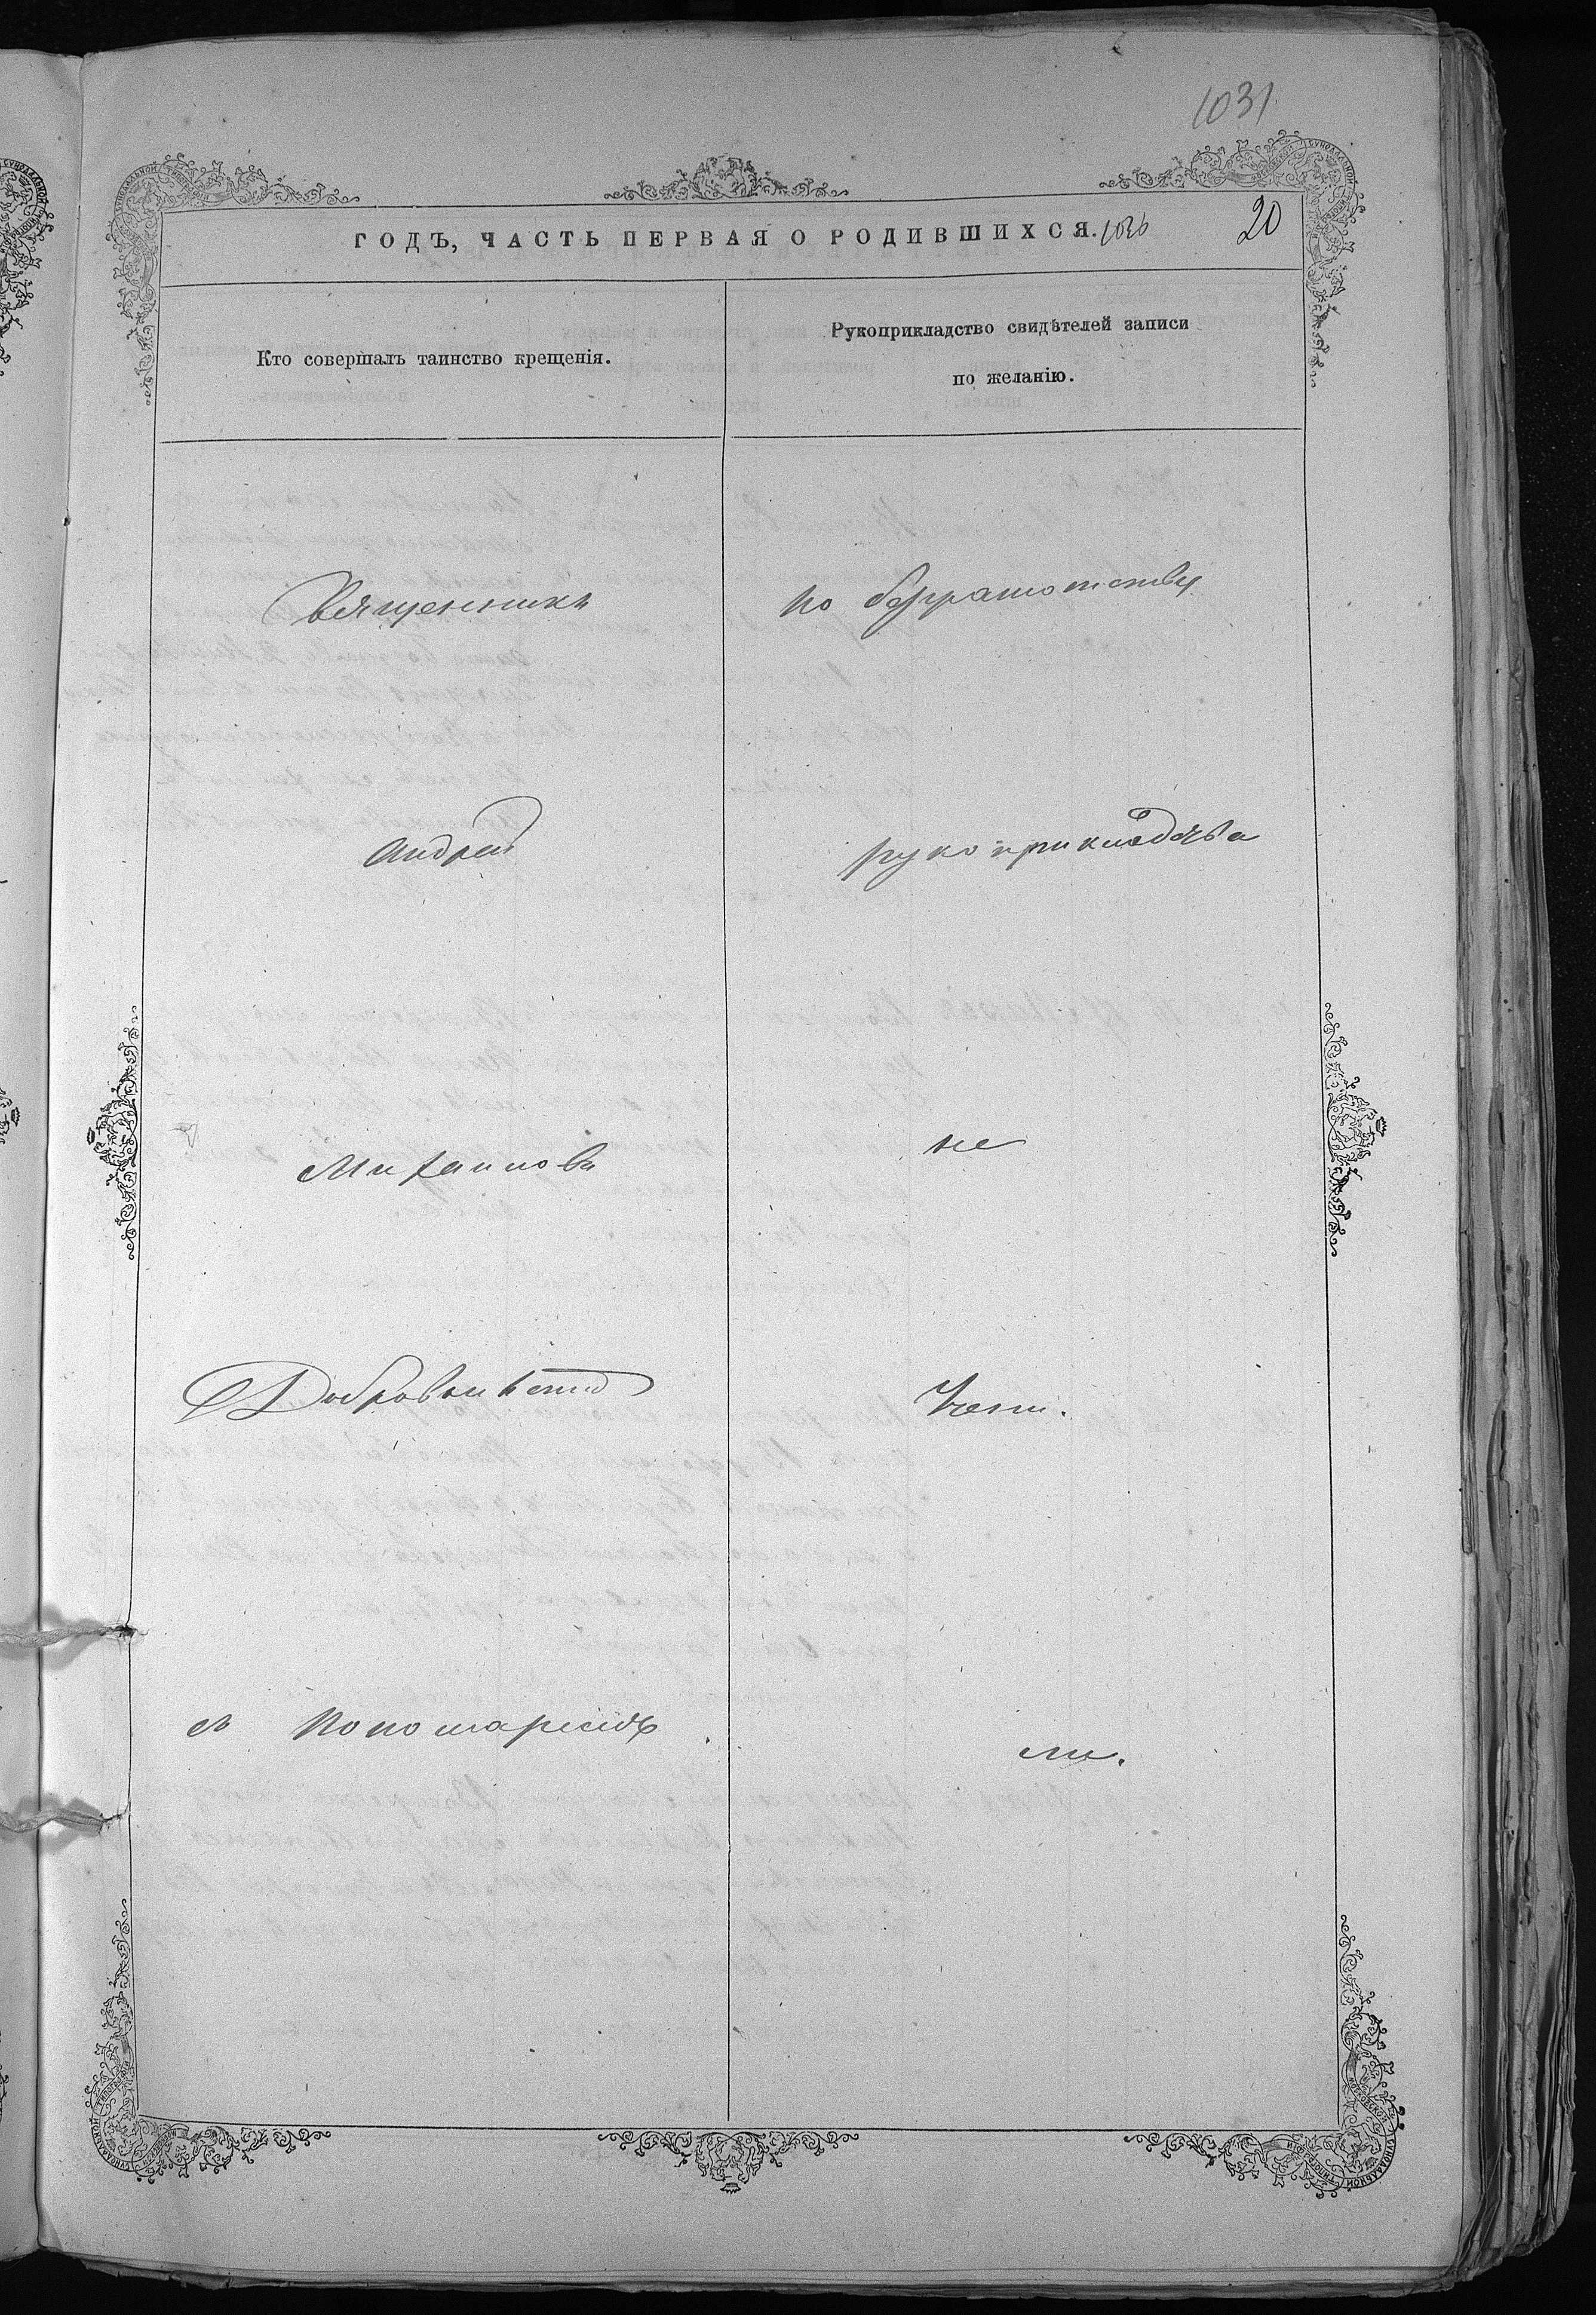 1031
ГОДЪ, ЧАСТЬ ПЕРВАЯ О РОДИВШИХСЯ.
20
Кто совершалъ таинство крещенія.
Рукоприкладство свидѣтелей записи
по желанію.
Священникъ
по безграмотству
Андрей
рукоприкладства
Михаиловъ
не
Добровольскій
Учени.
съ Пономаремъ
ли.